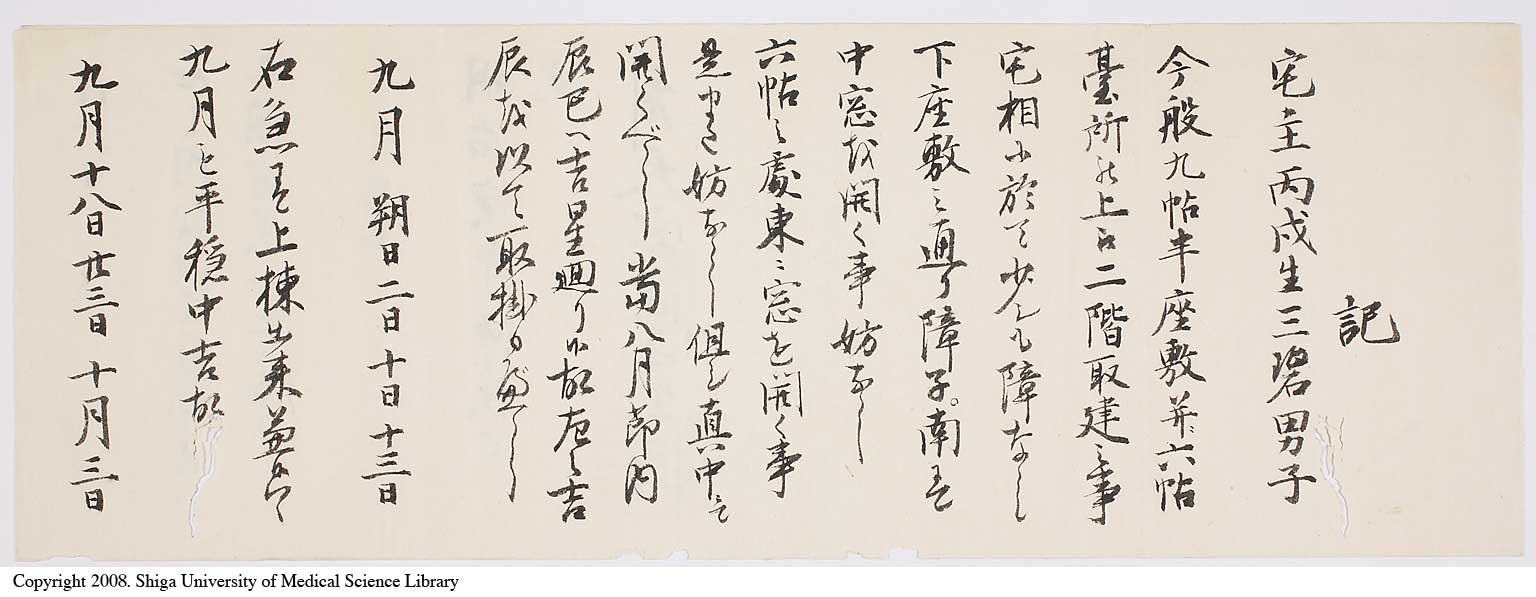 記
宅主丙戌生三碧男子
今般九帖半座敷并ニ六帖
臺所の上江二階取建之事
宅相ニ於て少しも障なし
下座敷之通り障子。南を
中窓を開く事妨なし
六帖之處東ニ窓を開く事
是また妨なし但し真中を
開くべし當八月節内
辰巳へ吉星廻り候故左之吉
辰を以て取掛り
九月 朔日二日十日十三日
右急き上棟出来兼候ハヽ
九月も平穏中吉故
九月十八日廿三日十月三日
Copyright 2008. Shiga University of Medical Science Library